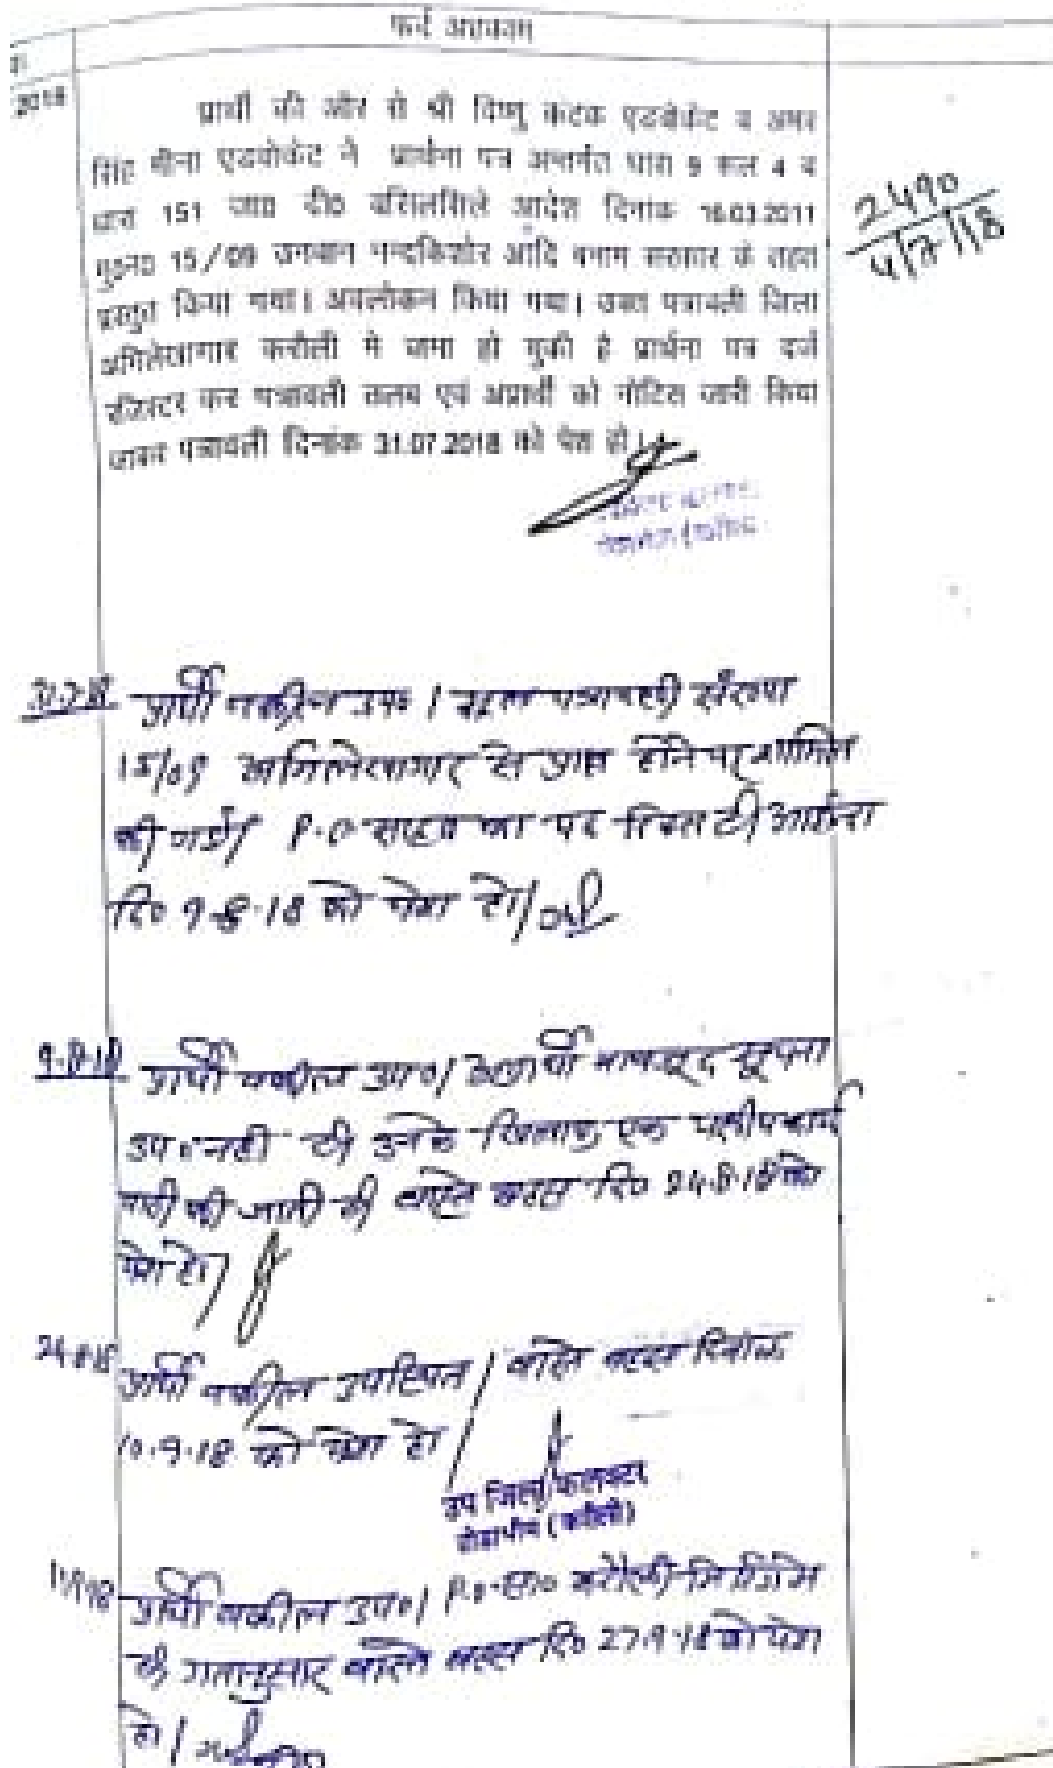 फर्द अहकाम
2018
प्रार्थी की ओर से श्री विष्णु एडवोकेट व अमर
सिंह मीना एडवोकेट ने प्रार्थना पत्र अन्तर्गत धारा 9 रूल 4 व
धारा 151 जा० दी० बसिलसिले आदेश दिनांक 16.03.2011
मु०न० 15/09 उनवान नन्दकिशोर आदि बनाम सरकार के तहत
प्रस्तुत किया गया। अवलोकन किया गया। उक्त पत्रावली जिला
अभिलेखागार करौली मे जमा हो चुकी है प्रार्थना पत्र दर्ज
रजिस्टर कर पत्रावली तलब एवं अप्रार्थी को नोटिस जारी किया
जाकर पत्रावली दिनांक 31.07.2018 को पेश हो।
2490
4/7/18
31-7-18 प्रार्थी वकील उप० / मूल पत्रावली संख्या
15/09 अभिलेखागार से प्राप्त होने पर शामिल
की गई। P.O साहब का पद रिक्त है।
दि० 9-8-18 को पेश हो/
9-8-18 प्रार्थी वकील उप०/ अप्रार्थी बावजूद सूचना
उप० नही है उनके खिलाफ एक पक्षीय कार्य
वाही की जाती है वास्ते बहस दि० 24-8-18 को
पेश हो/
24-8-18 प्रार्थी वकील उपस्थित / वास्ते बहस दिनांक
10-9-18 को पेश हो
उप जिला कलक्टर
टोडाभीम (करौली)
प्रार्थी वकील उप०/ P.O सा० करौली मिटिंग
में गतानुसार वास्ते बहस दि० 27-9-18 को पेश
हो /